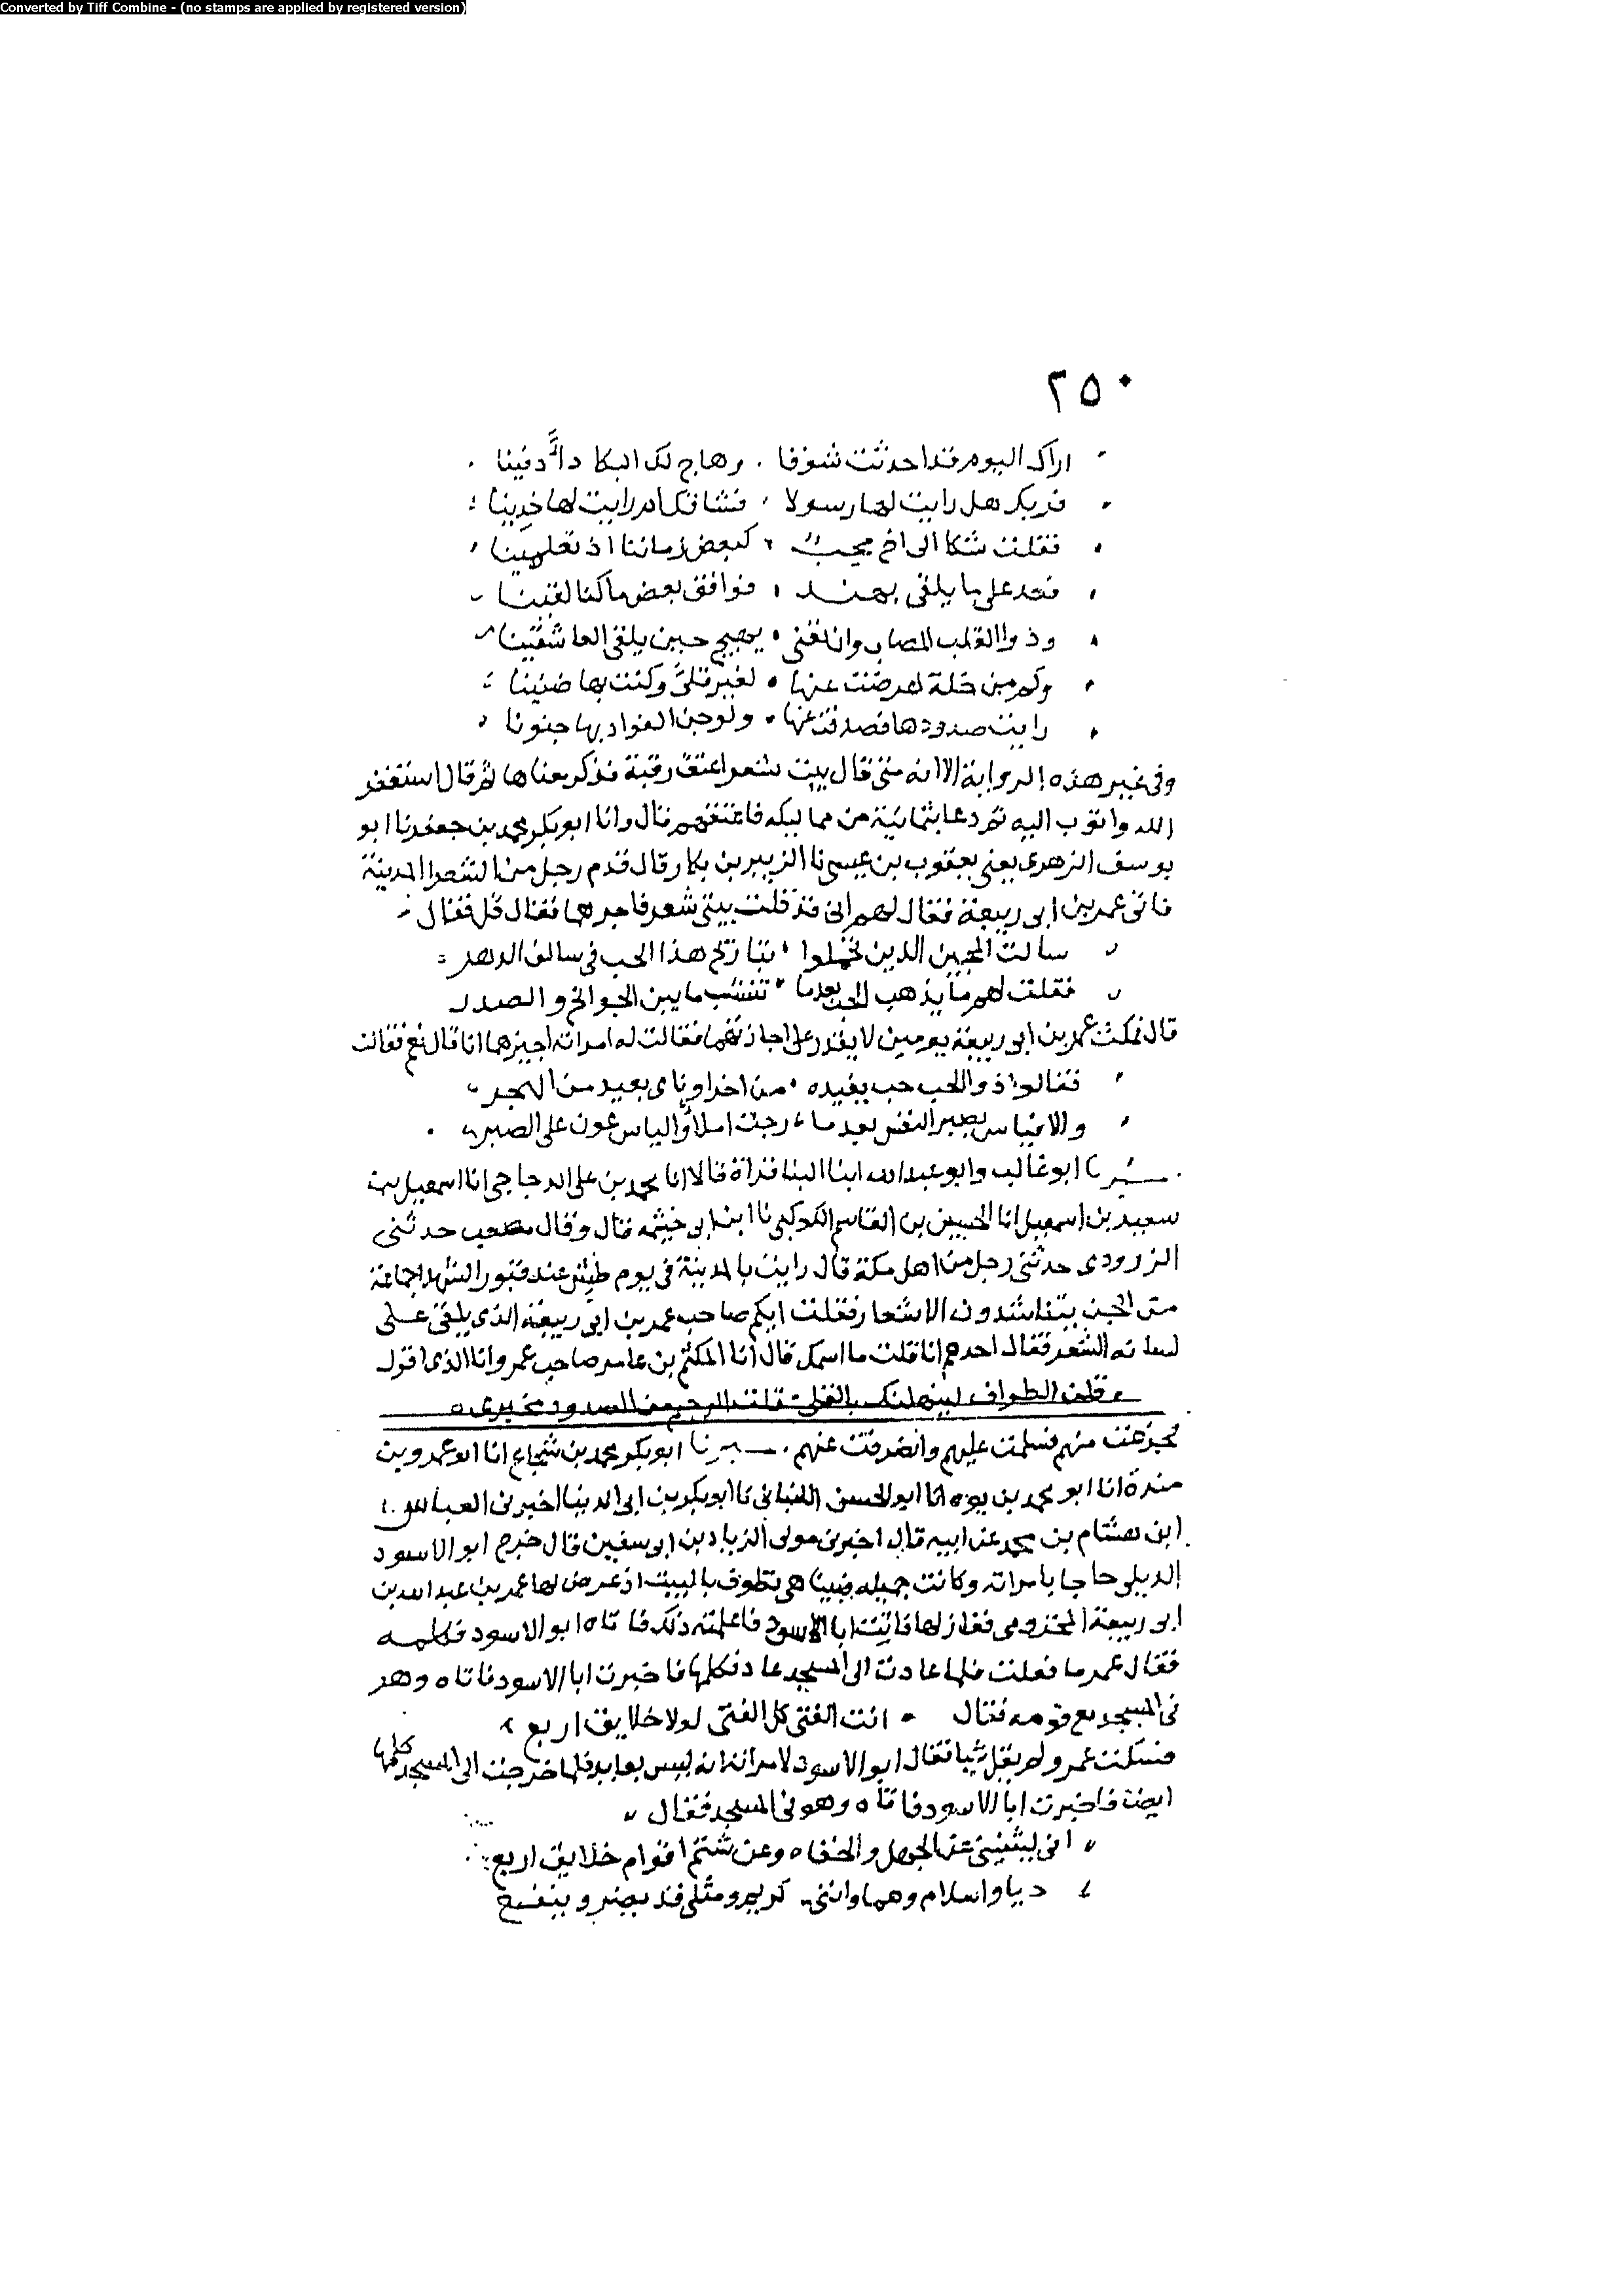 Converted by Tiff Combine - (no stamps are applied by registered version)
٢٥٠
اراك اليوم قد احدثت شوقا . وهاج لك البكا داً دفينا .
بربك هل رايت لها رسولا ، فشاقك ام رايت لها خدينا
فقلت شكا الى اخ محب ، كبعض زماننا اذ تعلمينا
فعد على ما يلقى بهند ، فوافق بعض ما كنا لقينا
وذوا القلب المصاب وان تعنى • يهيج حين يلقى العاشقينا
وكم من خلة اعرضت عنها • لغير قلى وكنت بها ضنينا
رايت صدودها فصدفت عنها • ولو جن الفواد بها جنونا
وفي غير هذه الرواية الا انه متى قال بيت شعر اعتق رقبة فذكر معناها ثم قال استغفر
الله واتوب اليه ثم دعا بثمانية من مماليكه فاعتقهم قال وانا ابو بكر محمد بن جعفر نا ابو
يوسف الزهرى يعنى يعقوب بن عيسى نا الزبير بن بكار قال قدم رجل من الشعرا المدينة
فاتى عمر بن ابى ربيعة فقال لهم انى قد قلت بيتى شعر فاجرهما فقال قل فقال
سالت المحبين الذين تحملوا • تباريح هذا الحب فى سالف الدهر
فقلت لهم ما يذهب الحب بعدما • تنشب ما بين الجوانح والصدر
قال فمكث عمر بن ابى ربيعة يومين لا يقدر على اجازتهما فقالت له امراته اجيزهما انا قال نعم فقالت
فقالوا ذو الحب حب يفيده • من اخر او ناى بعيد من الهجر
والا فياس يصبر النفس بعدما • رجت املا والياس عون على الصبر
ابو غالب وابو عبد الله ابنا البنا قراة قالا انا محمد بن على الدجاجى انا اسمعيل بن
سعيد بن اسمعيل انا الحسين بن القاسم الكوكبى نا ابن ابى خيثمه قال وقال مصعب حدثنى
الزرودى حدثنى رجل من اهل مكة قال رايت بالمدينة فى يوم طش عند قبور الشهدا جماعة
من الجن يتناشدون الاشعار فقلت ايكم صاحب عمر بن ابى ربيعة الذى يلقى على
لسانه الشعر فقال احدهم انا قلت ما اسمك قال انا المكتم بن عامر صاحب عمر وانا الذى اقول
فجزعت منهم فسلمت عليهم وانصرفت عنهم . ابو بكر محمد بن شجاع انا ابو عمرو بن
مندة انا ابو محمد بن يوه انا ابو الحسن اللنبانى نا ابو بكر بن ابى الدنيا اخبرنى العباس
ابن هشام بن محمد عن ابيه قال اخبرنى مولى الزياد بن ابى سفين قال خرج ابو الاسود
الديلى حاجا بامراته وكانت جميله فبينا هى تطوف بالبيت اذ عرض لها عمر بن عبد الله بن
ابى ربيعة المخزومى فغازلها فاتت ابا الاسود فاعلمته ذلك فاتاه ابو الاسود فكلمه
فقال عمر ما فعلت فلما عادت الى المسجد عاد فكلمها فاخبرت ابا الاسود فاتاه وهو
فى المسجد مع قومه فقال • انت الفتى كل الفتى لولا خلايق اربع
فسكت عمر ولم يقل شيا فقال ابو الاسود لامراته انه ليس بعايد فلما خرجت الى المسجد كلمها
ايضا فاخبرت ابا الاسود فاتاه وهو فى المسجد فقال
انى ليثنينى عن الجهل والخناه وعن شتم اقوام خلايق اربع
حيا واسلام وهما واننى كريم ومثلى قد يضر وينفع